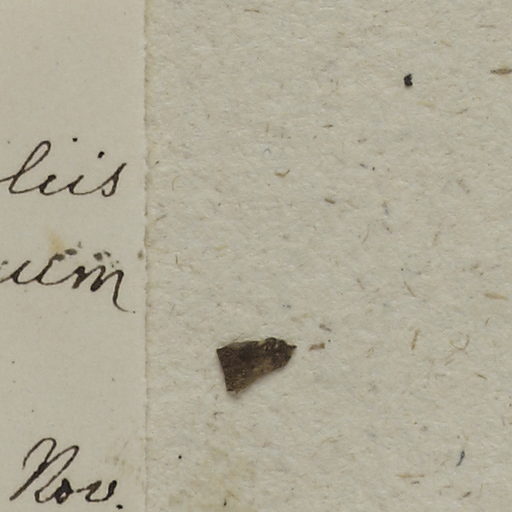 liis
um
Nov.